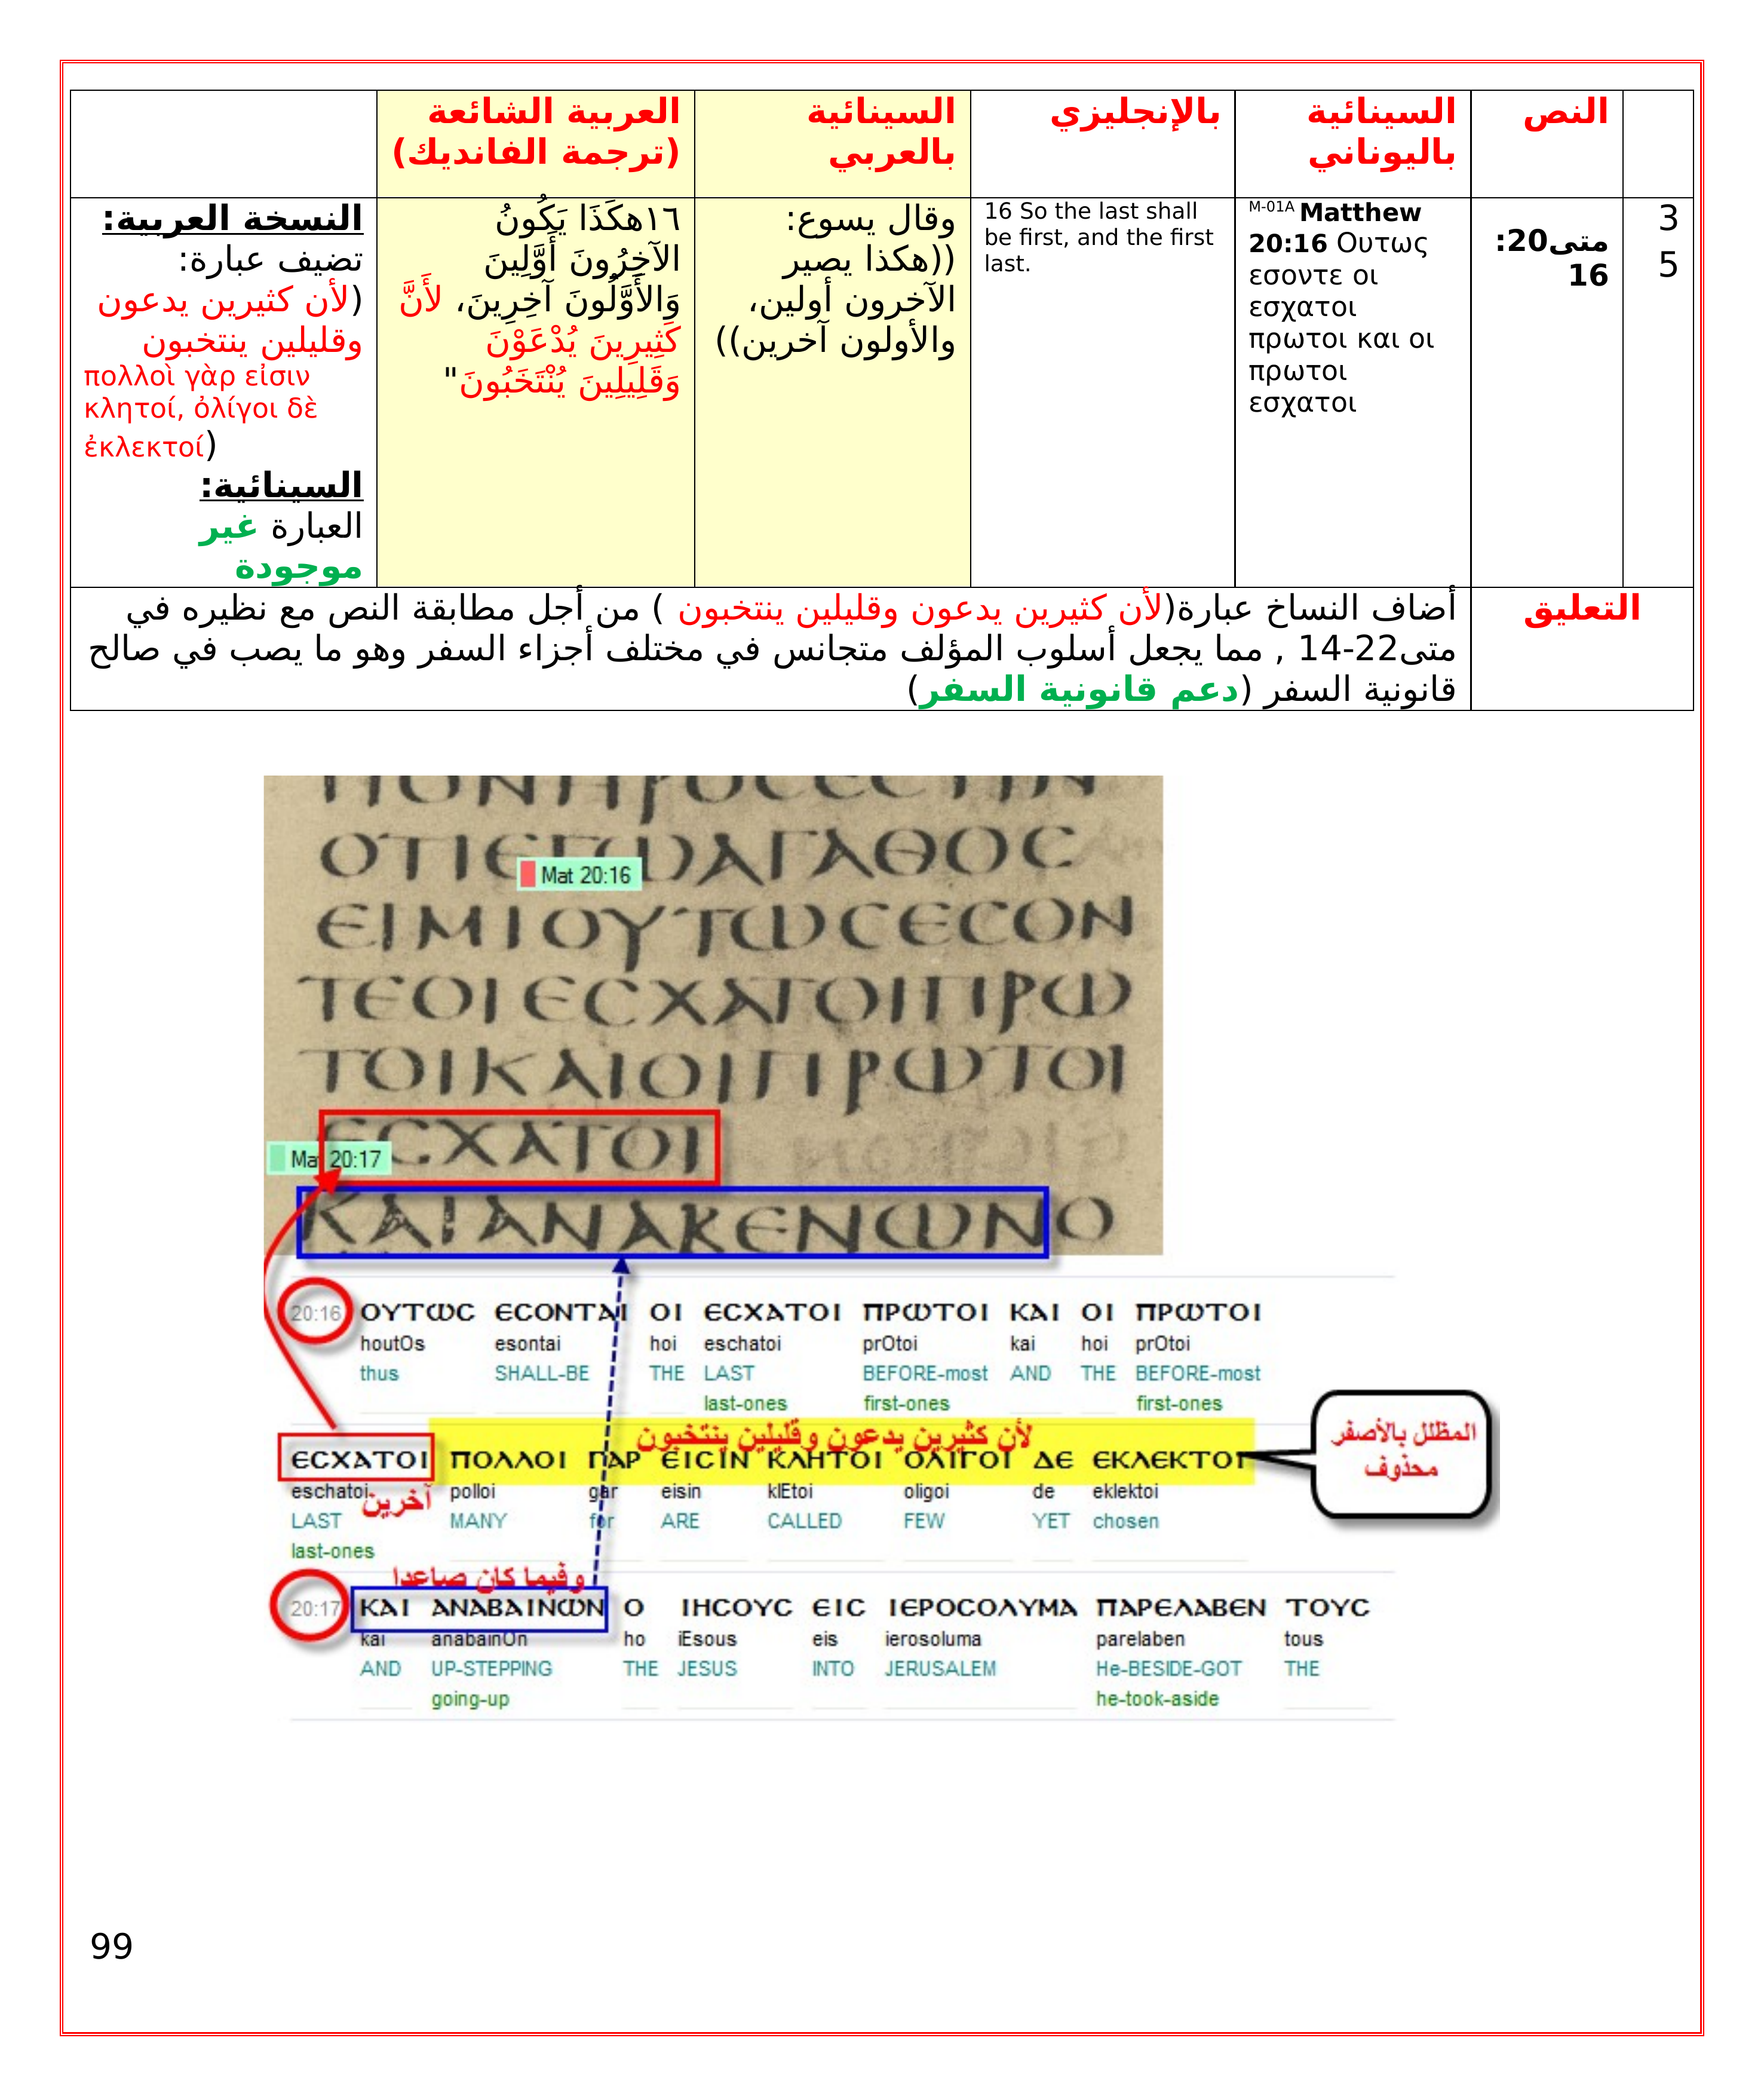 النص
السينائية
باليوناني
بالإنجليزي
السينائية
بالعربي
العربية الشائعة
(ترجمة الفانديك)
3
5
متى20:
16
M-01A Matthew
20:16 Ουτως
εσοντε οι
εσχατοι
πρωτοι και οι
πρωτοι
εσχατοι
16 So the last shall
be first, and the first
last.
وقال يسوع:
((هكذا يصير
الآخرون أولين،
والأولون آخرين))
١٦هكَذَا يَكُونُ
الآخِرُونَ أَوَّلِينَ
وَالأَوَّلُونَ آخِرِينَ، لأَنَّ
كَثِيرِينَ يُدْعَوْنَ
وَقَلِيلِينَ يُنْتَخَبُونَ"
النسخة العربية:
تضيف عبارة:
(لأن كثيرين يدعون
وقليلين ينتخبون
πολλοὶ γὰρ εἰσιν
κλητοί, ὀλίγοι δὲ
ἐκλεκτοί)
السينائية:
العبارة غير
موجودة
التعليق
أضاف النساخ عبارة(لأن كثيرين يدعون وقليلين ينتخبون ) من أجل مطابقة النص مع نظيره في
متى22-14 , مما يجعل أسلوب المؤلف متجانس في مختلف أجزاء السفر وهو ما يصب في صالح
قانونية السفر (دعم قانونية السفر)
ΠΟΝΗΡΟCЄCΤΙΝ
ΟΤΙЄΓⲰΑΓΑΘΟC
Mat 20:16
ЄΙΜΙΟΥΤⲰCЄCΟΝ
ΤЄΟΙЄCΧΑΤΟΙΠΡⲰ
ΤΟΙΚΑΙΟΙΠΡⲰΤΟΙ
ЄCΧΑΤΟΙ
Mat 20:17
ΚΑΙΑΝΑΚЄΝⲰΝΟ
20:16 ΟΥΤⲰC ЄCΟΝΤΑΙ ΟΙ ЄCΧΑΤΟΙ ΠΡⲰΤΟΙ ΚΑΙ ΟΙ ΠΡⲰΤΟΙ
houtOs esontai hoi eschatoi prOtoi kai hoi prOtoi
thus SHALL-BE THE LAST BEFORE-most AND THE BEFORE-most
last-ones first-ones first-ones
لأن كثيرين يدعون وقليلين ينتخبون
المظلل بالأصفر
محذوف
ЄCΧΑΤΟΙ ΠΟΛΛΟΙ ΓΑΡ ЄΙCΙΝ ΚΛΗΤΟΙ ΟΛΙΓΟΙ ΔЄ ЄΚΛЄΚΤΟΙ
eschatoi polloi gar eisin klEtoi oligoi de eklektoi
آخرين
LAST MANY for ARE CALLED FEW YET chosen
last-ones
وفيما كان صاعدا
20:17 ΚΑΙ ΑΝΑΒΑΙΝⲰΝ Ο ΙΗCΟΥC ЄΙC ΙЄΡΟCΟΛΥΜΑ ΠΑΡЄΛΑΒЄΝ ΤΟΥC
kai anabainOn ho iEsous eis ierosoluma parelaben tous
AND UP-STEPPING THE JESUS INTO JERUSALEM He-BESIDE-GOT THE
going-up he-took-aside
99